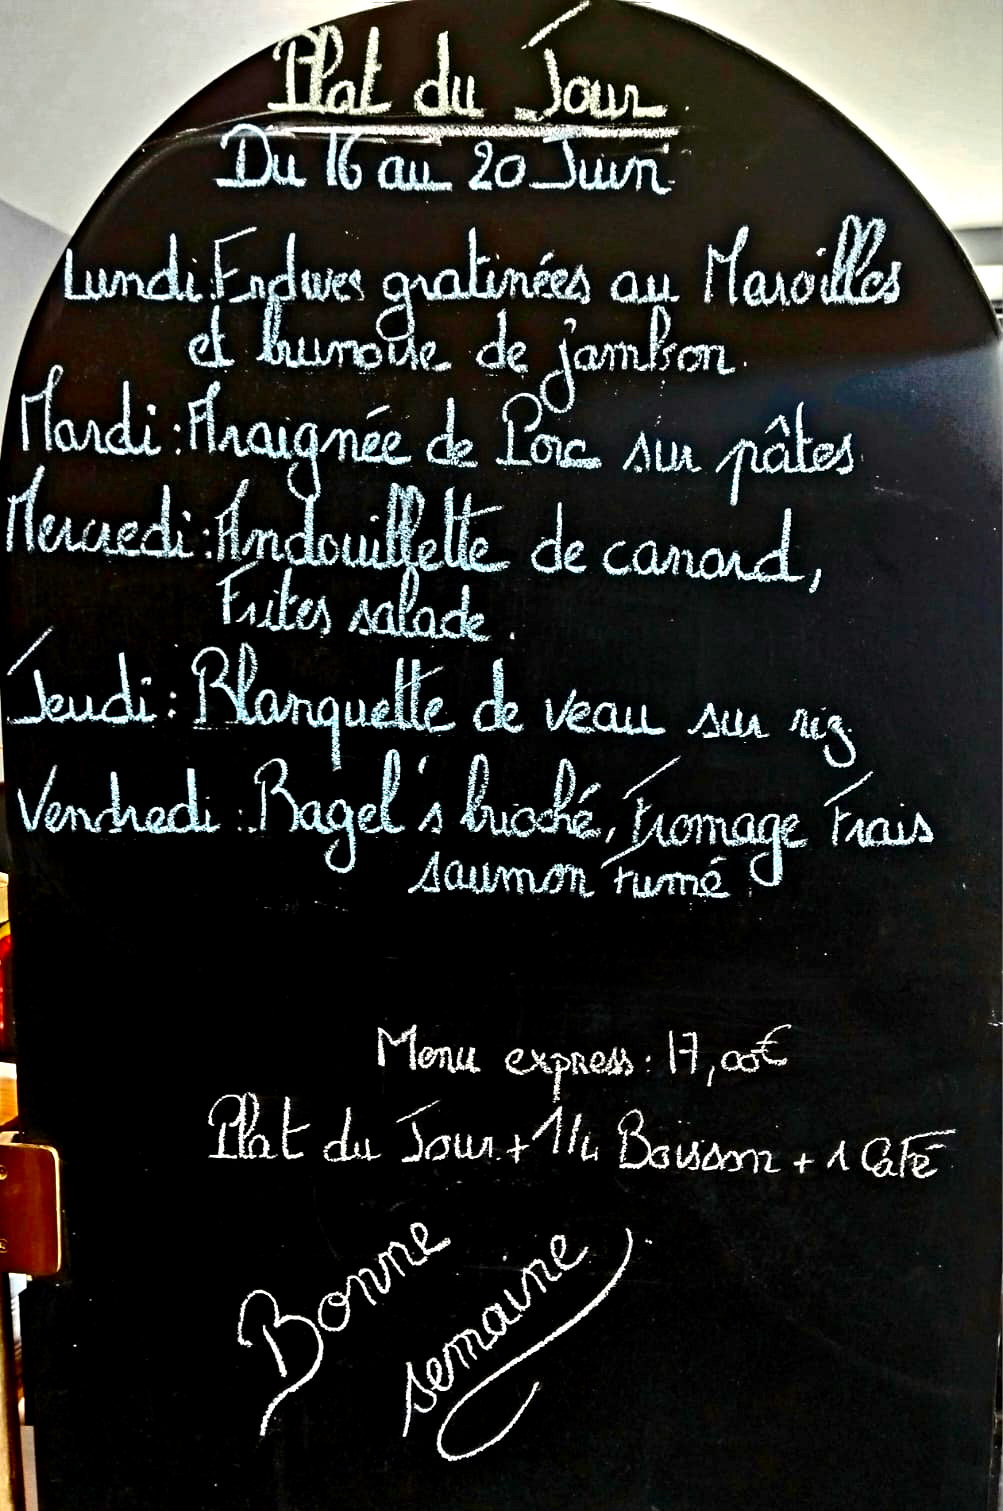 Plat du Jour
Du 16 au 20 Juin
Lundi: Endives gratinées au Maroilles
et brunoise de jambon.
Mardi: Araignée de Porc sur pâtes
Mercredi: Andouillette de canard,
Frites salade.
Jeudi: Blanquette de veau sur riz
Vendredi: Bagel's brioché, Fromage Frais
saumon fumé
Menu express: 17,00€
Plat du Jour + 1/4 Boisson + 1 Café
Bonne
semaine